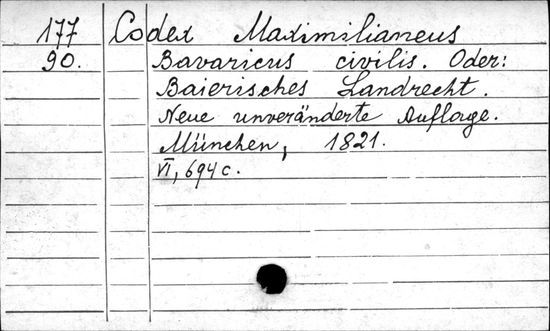 177 Codex Maximilianeus
90. Bavaricus civilis. Oder:
Baierisches Landrecht.
Neue unveränderte Auflage.
München, 1821.
VI, 694 c.